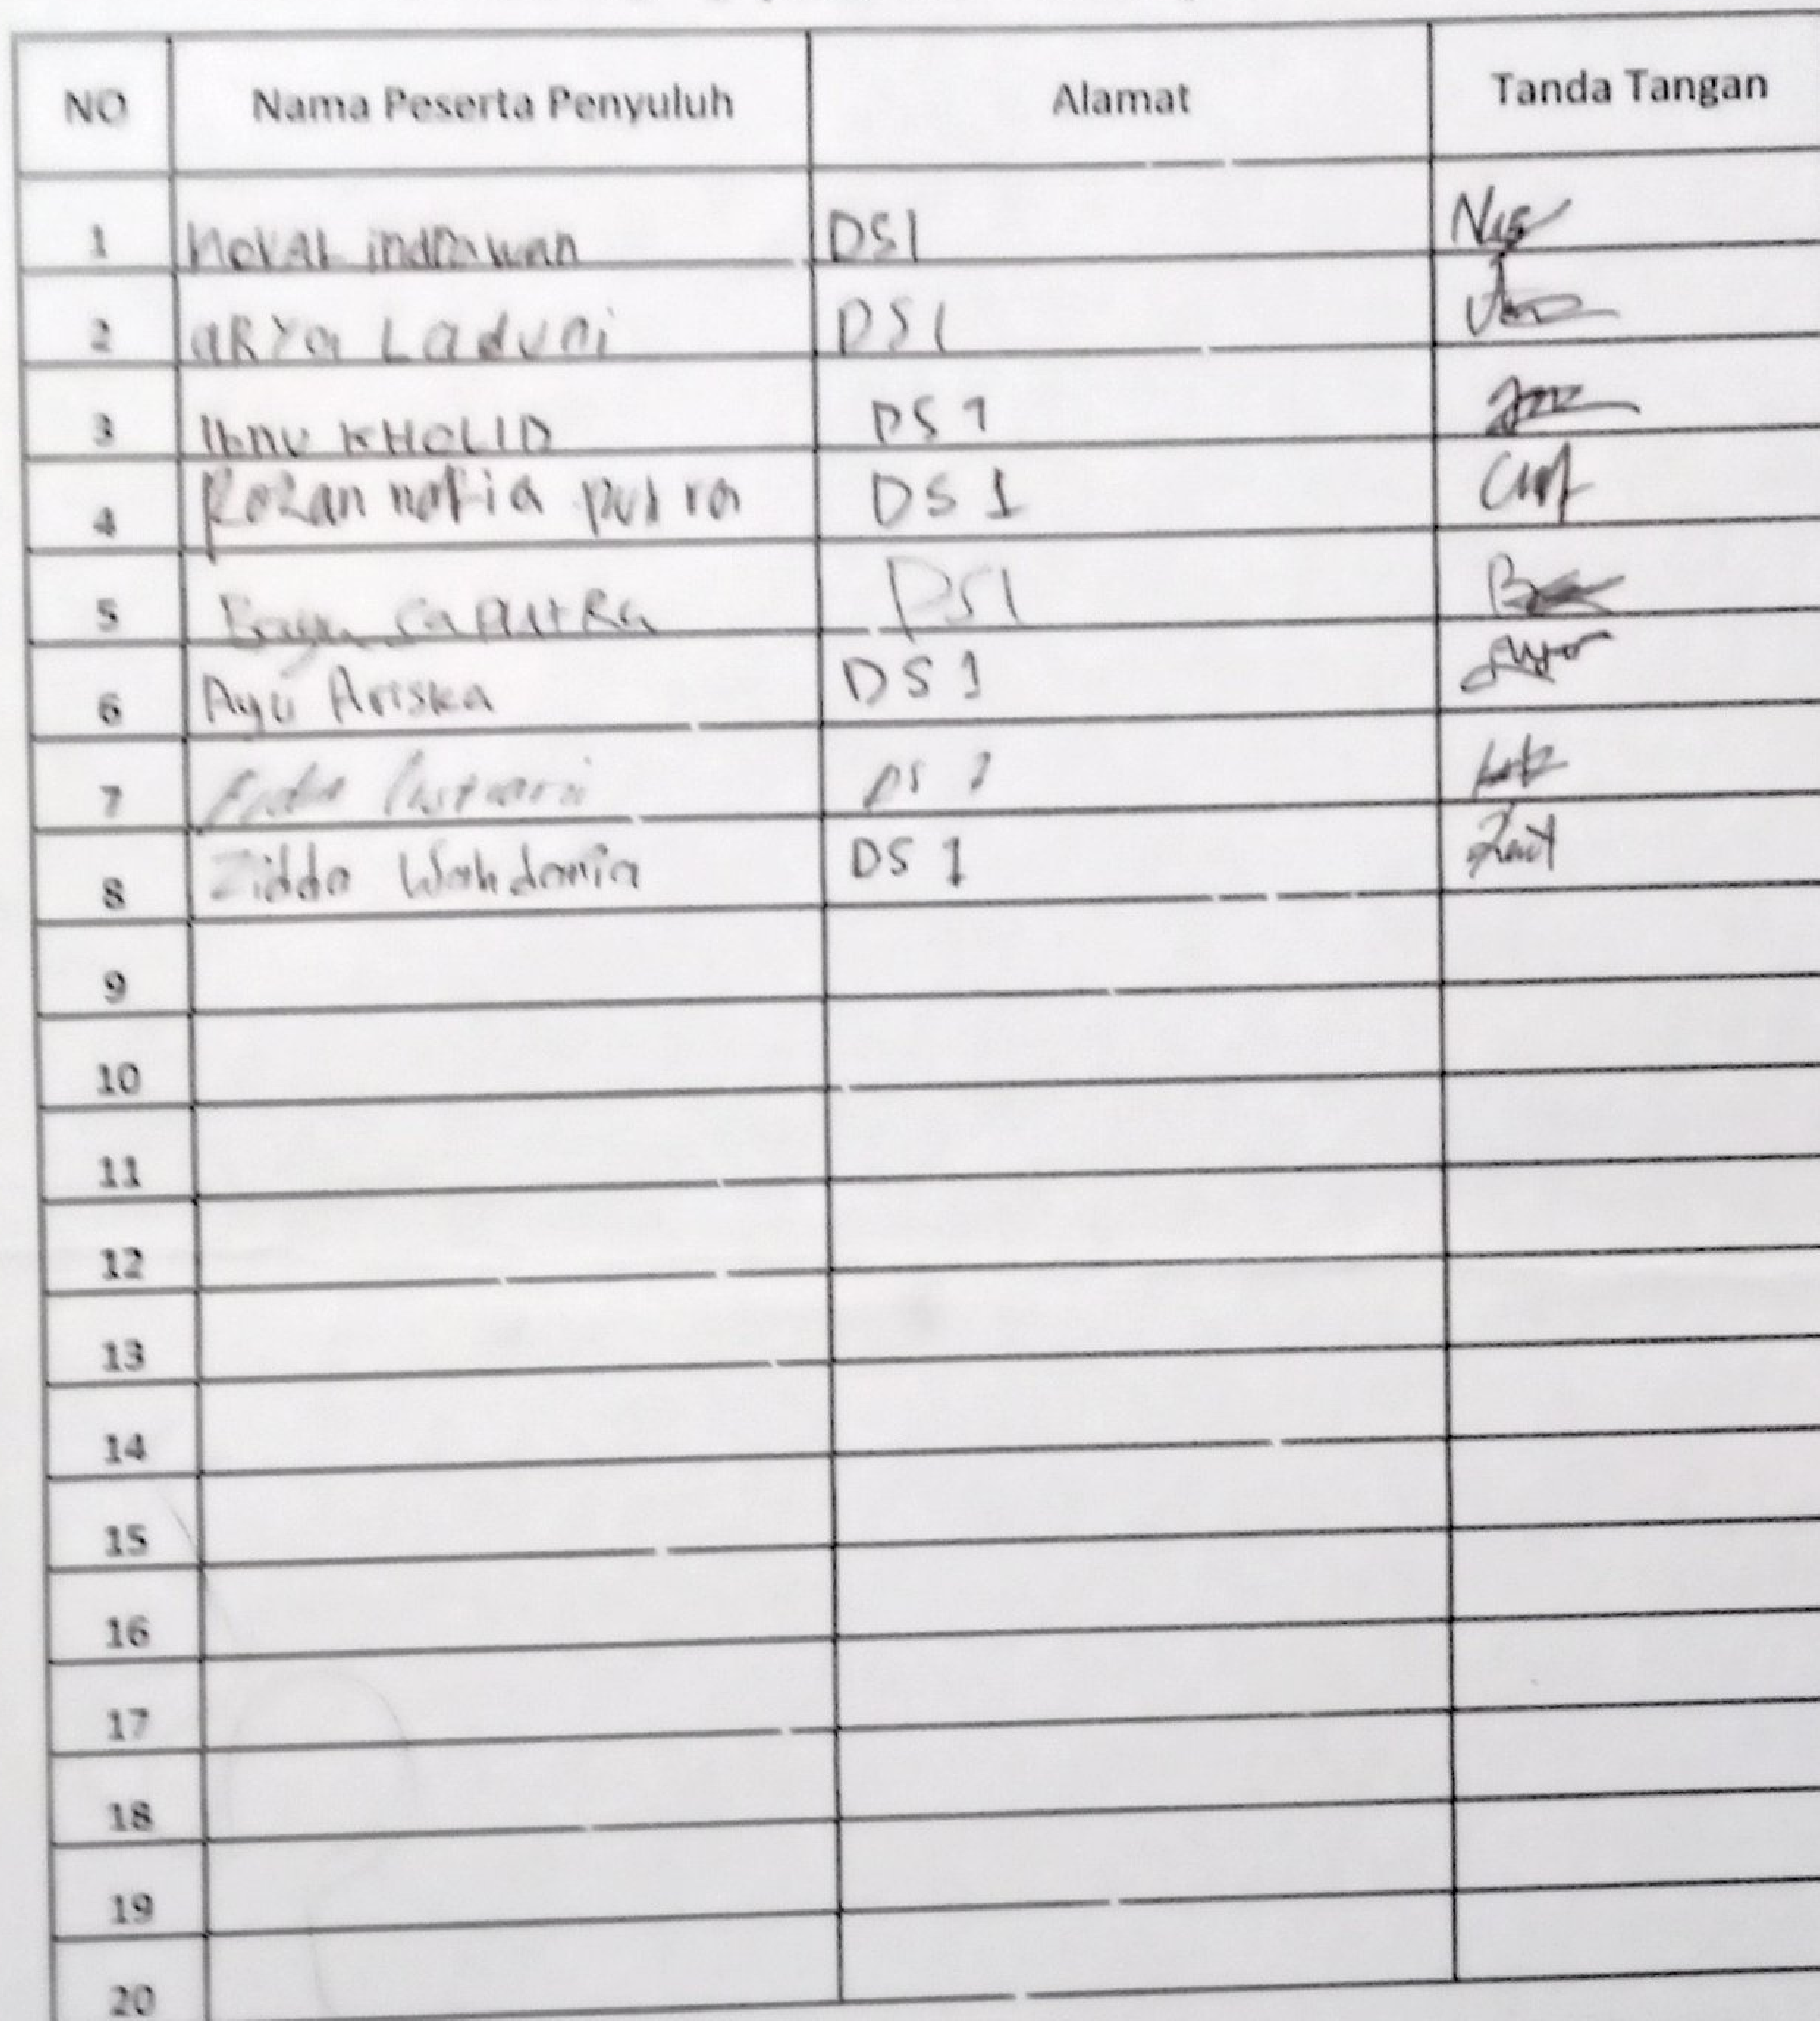 NO Nama Peserta Penyuluh Alamat Tanda Tangan
1 Noval indrawan DS1
2 aRYa Laduni DS1
3 Ibnu KHOLID DS 1
4 Rozan nafia putra DS 1
5 Bagu SaPUtRa DS1
6 Ayu Ariska DS 1
7 DS 1
8 Zidda Wahdania DS 1
9
10
11
12
13
14
15
16
17
18
19
20